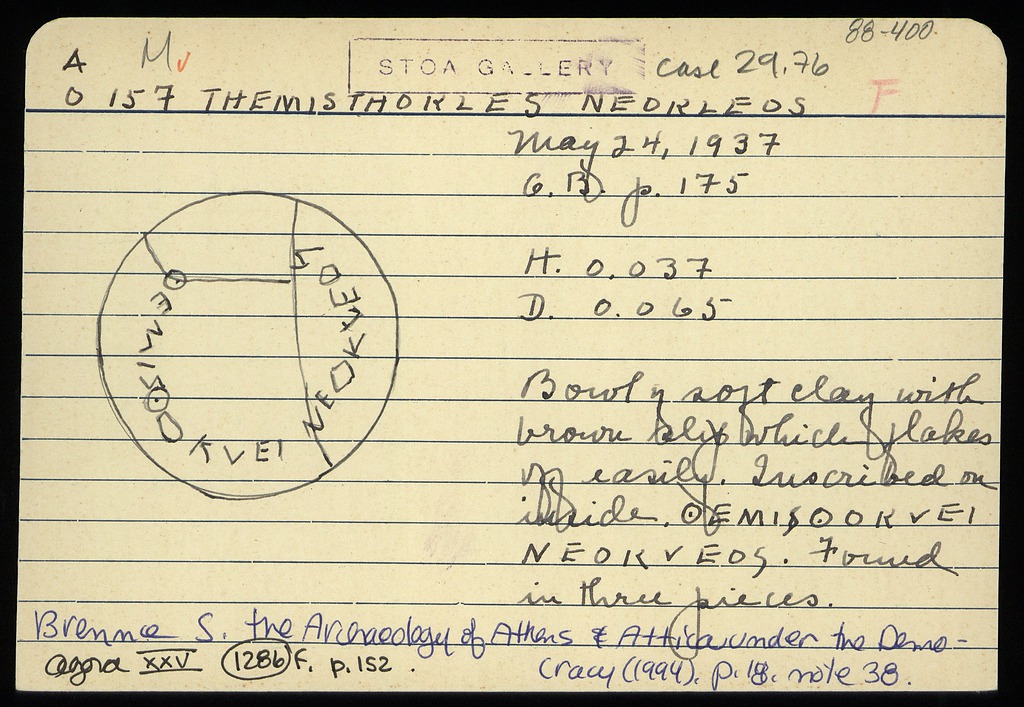 88-400.
A M✓ STOA GALLERY case 29,76
O 157 THEMISTHOKLES NEOKLEOS F
May 24, 1937
G.B. p. 175
H. 0.037
D. 0.065
ΘEMISΘOKVEI
NEOKVEOS
Bowl of soft clay with
brown slip which flakes
off easily. Inscribed on
inside. ΘEMISΘOKVEI
NEOKVEOS. Found
in three pieces.
Brenne S. the Archaeology of Athens & Attica under the Demo-
cracy (1994). p. 18. note 38.
agora XXV 1286 F. p. 152.